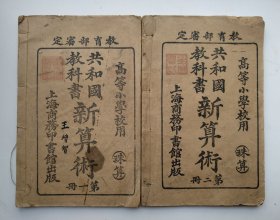 教育部審定
高等小學校用
珠算
共和國
教科書
新算術
第一冊
上海商務印書館出版
教育部審定
高等小學校用
珠算
共和國
教科書
新算術
第二冊
上海商務印書館出版